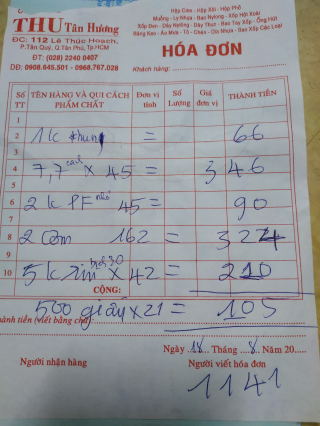 THU Tân Hương
ĐC: 112 Lê Thúc Hoạch,
P.Tân Quý, Q.Tân Phú, Tp.HCM
ĐT: (028) 2240 0407
DĐ: 0908.645.501 - 0968.767.028
Hộp Ciêu - Hộp Xôi - Hộp Phở
Muỗng - Ly Nhựa - Bao Nylong - Xốp Hột Xoài
Xốp Đen - Dây Nylong - Dây Thun - Bao Tay Xốp - Ống Hút
Băng Keo - Áo Mưa - Tô - Chén - Dĩa Nhựa - Bao Xốp Các Loại
HÓA ĐƠN
Khách hàng:
Số TT TÊN HÀNG VÀ QUI CÁCH PHẨM CHẤT Đơn vị tính Số Lượng Giá đơn vị THÀNH TIỀN
1
2 1k = 66
3
4 7,7 x 45 = 346
5
6 2k PE 45 = 90
7
8 2 162 = 324
9
10 5k x 42 = 210
CỘNG:
500 giấy x 21 = 105
Thành tiền (viết bằng chữ)
Ngày 18 Tháng 8 Năm 20
Người nhận hàng Người viết hóa đơn
1141